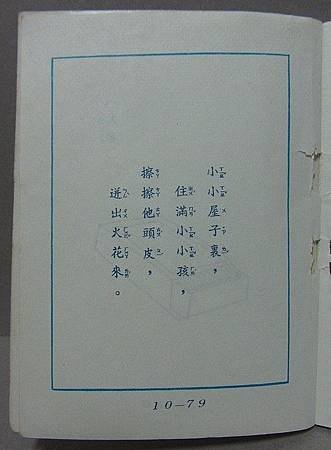 小小屋子裏，
住滿小小孩，
擦擦他頭皮，
迸出火花來。
10—79